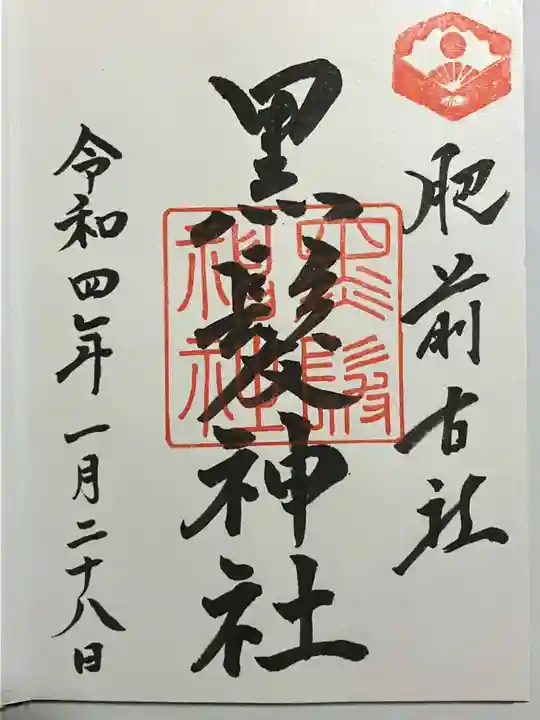 肥前古社
黒髪神社
黒髪神社
令和四年一月二十八日